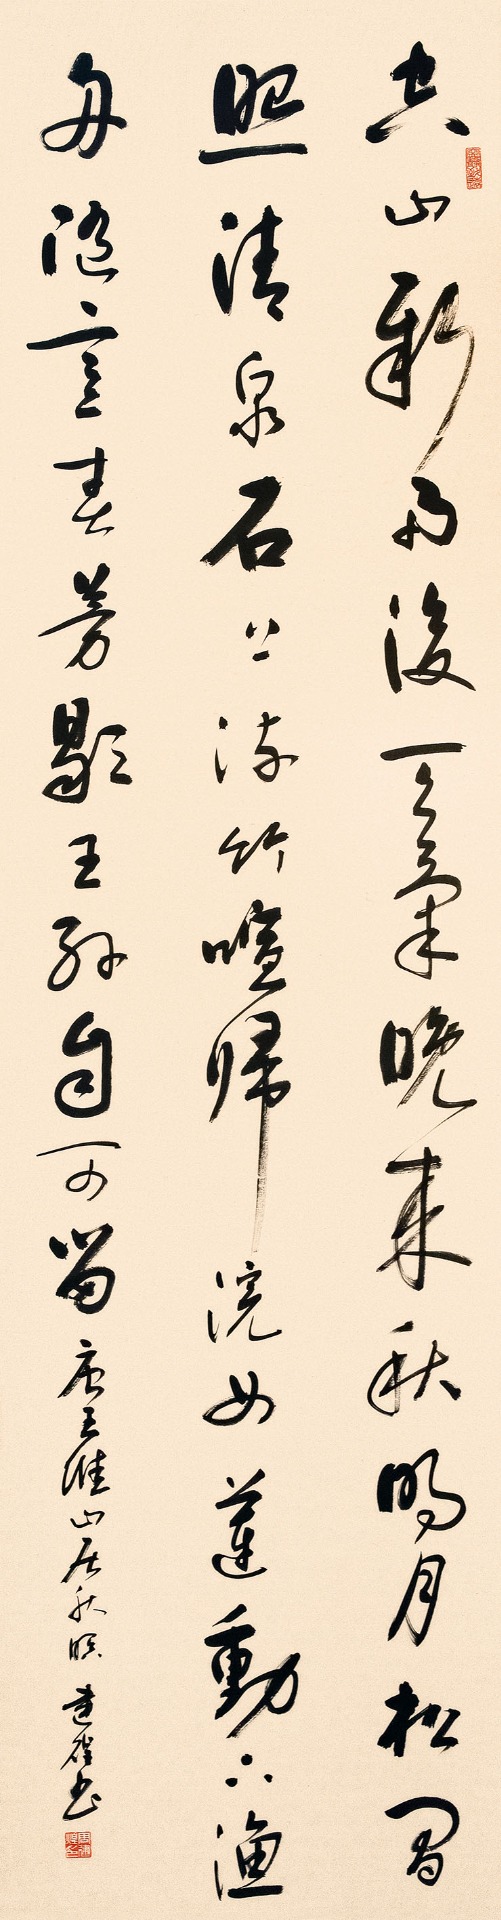 空山新雨後天氣晚來秋明月松間
照清泉石上流竹喧歸浣女蓮動下漁
舟隨意春芳歇王孫自可留唐王維山居秋暝 建碓书